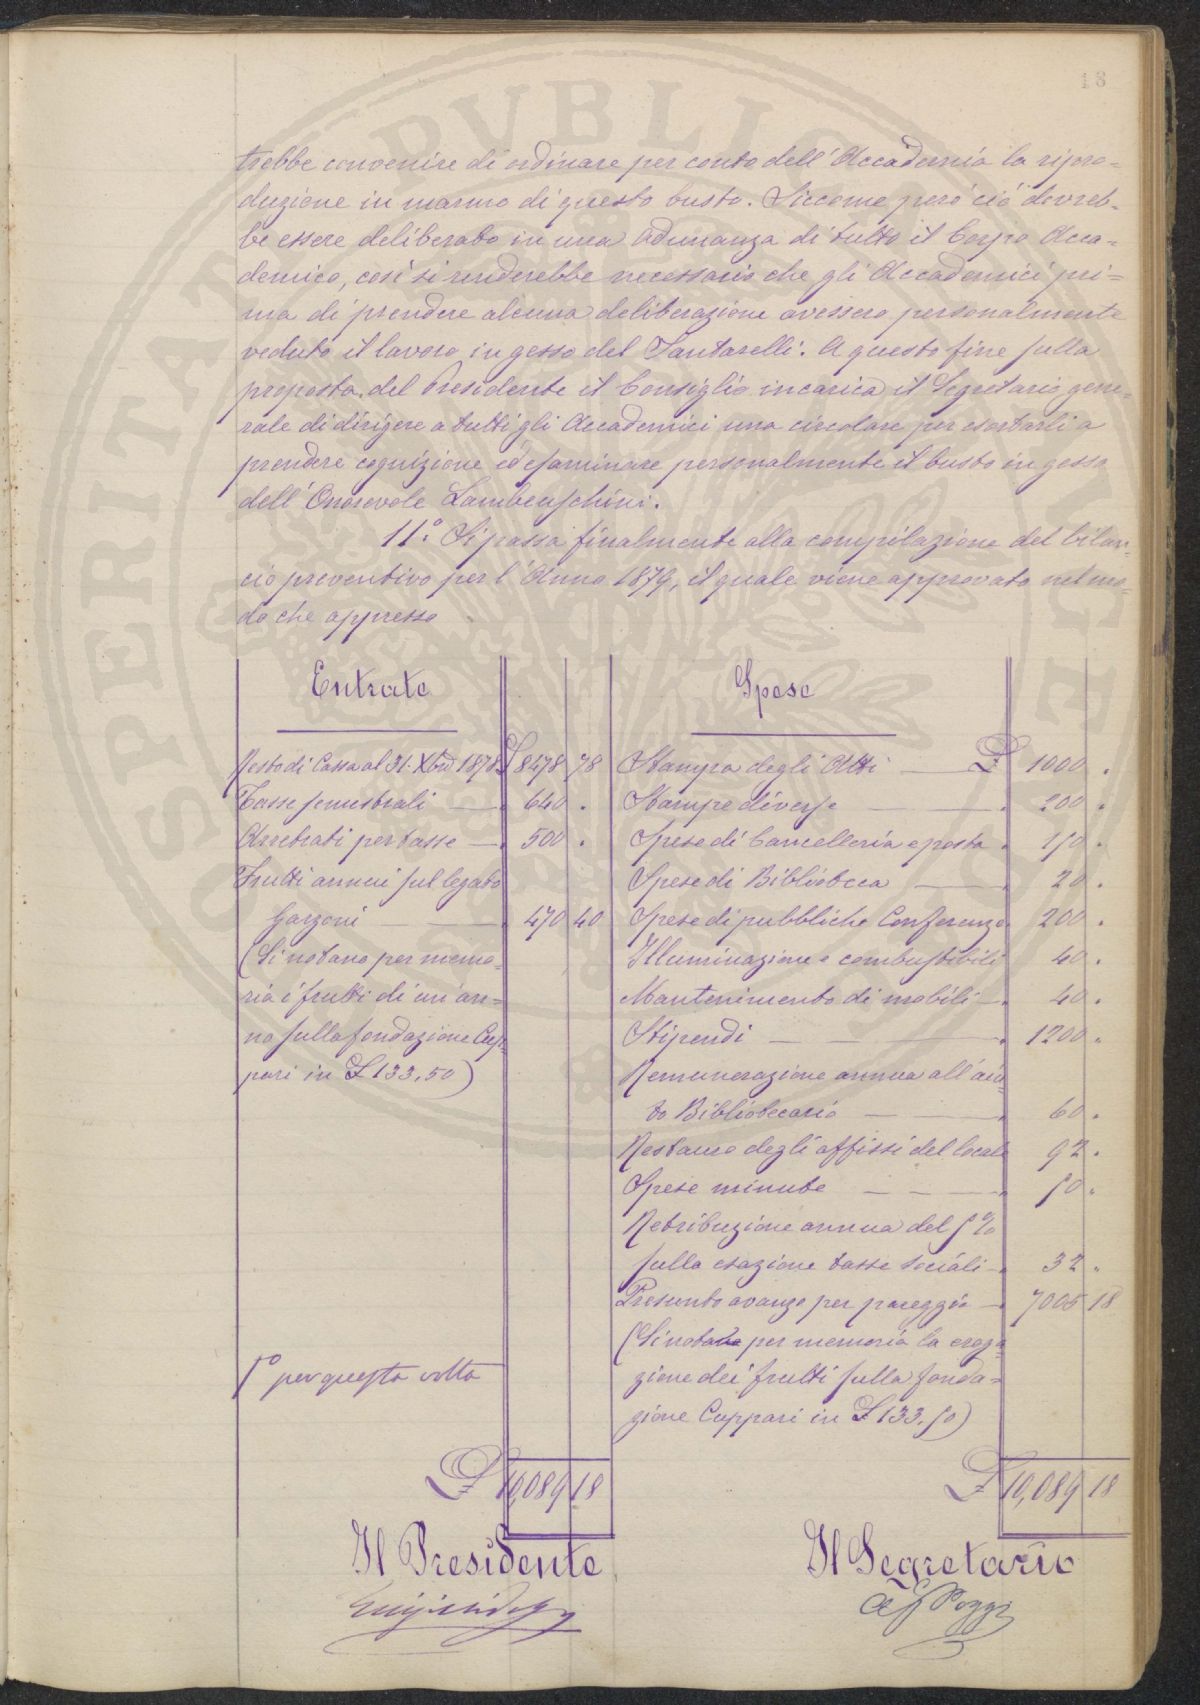 18
trebbe convenire di ordinare per conto dell'Accademia la ripro=
duzione in marmo di questo busto. Siccome però ciò dovreb-
be essere deliberato in una adunanza di tutto il Corpo Acca=
demico, così si renderebbe necessario che gli Accademici pri=
ma di prendere alcuna deliberazione avessero personalmente
veduto il lavoro in gesso del Santarelli. A questo fine sulla
proposta del Presidente il Consiglio incarica il Segretario gene-
rale di dirigere a tutti gli Accademici una circolare per esortarli a
prendere cognizione ed esaminare personalmente il busto in gesso
dell'Onorevole Lambruschini.
11.° Si passa finalmente alla compilazione del bilan-
cio preventivo per l'Anno 1879, il quale viene approvato nel mo-
do che appresso
Entrate
Resto di Cassa al 31. Xbre 1878 £ 8478 78
Tasse semestrali — 640 .
Arretrati per tasse — 500 .
Frutti annui sul legato
Garzoni — 470 40
(Si notano per memo-
ria i frutti di un an=
no sulla fondazione Cup-
pari in £ 133,50)
1° per questa volta
£ 10,089 18
Spese
Stampa degli Atti — £ 1000 .
Stampe diverse — 200 .
Spese di Cancelleria e posta . 150 .
Spese di Biblioteca — 20 .
Spese di pubbliche Conferenze 200 .
Illuminazione e combustibili 40 .
Mantenimento di mobili — 40 .
Stipendi — — 1200 .
Remunerazione annua all'aiu-
to Bibliotecario — 60 .
Restauro degli affissi del locale 92 .
Spese minute — — 50 .
Retribuzione annua del 5%
sulla esazione tasse sociali — 32 .
Presunto avanzo per pareggio — 7005 18
(Si nota per memoria la eroga-
zione dei frutti sulla fonda=
zione Cuppari in £ 133,50)
£ 10,089 18
Il Presidente
Il Segretario
Poggi
PERITAT PVBLIC